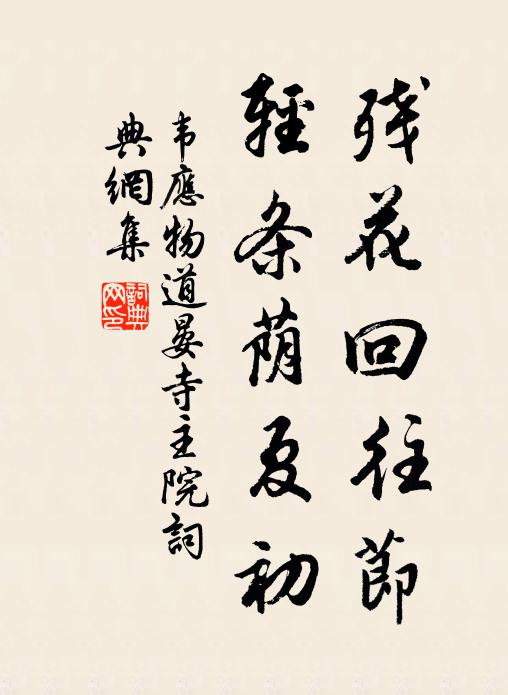 残花回往節
輕条荫夏初
韦應物道晏寺主院詞
典網集
詞典网印